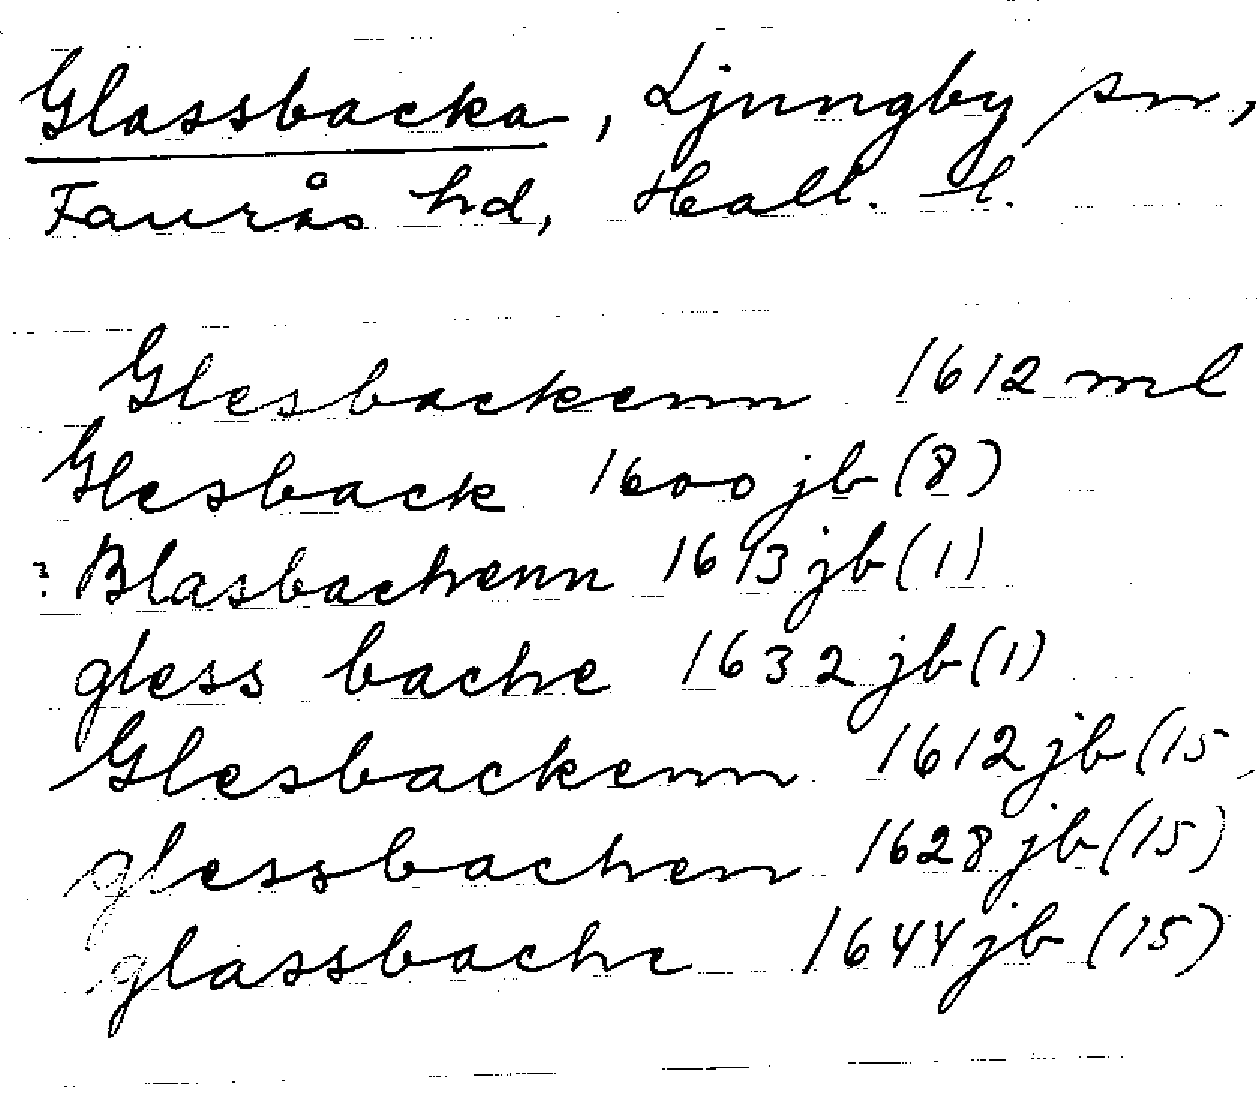 Glassbacka, Ljungby sn,
Faurås hd, Hall. l.
Glesbackenn 1612 ml
Glesback 1600 jb (8)
? Blasbachenn 1613 jb (1)
gless bache 1632 jb (1)
Glesbackenn 1612 jb (15
glessbachen 1628 jb (15)
glassbache 1644 jb (15)